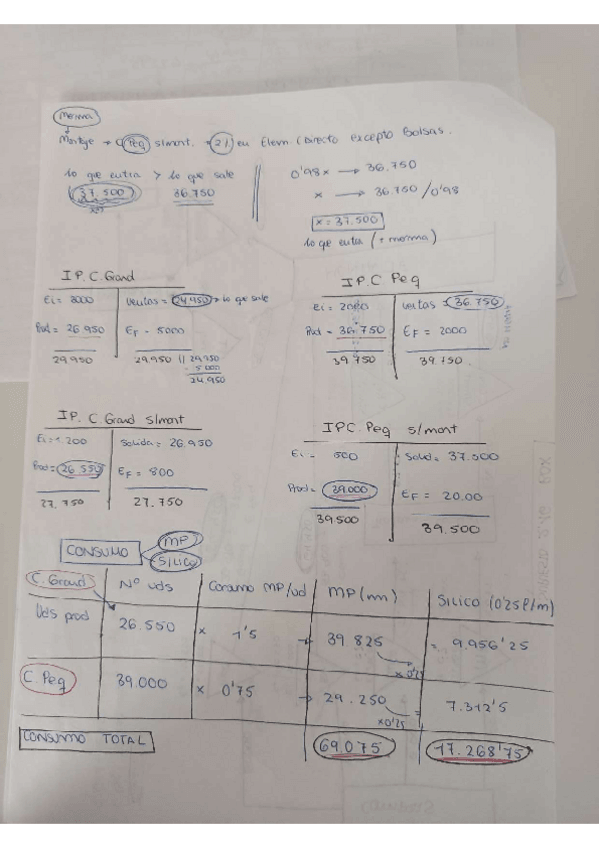 merma
Montaje → C Peq s/mont. → 2% en Elem (Directo excepto Bolsas.
lo que entra > lo que sale
37.500 36.750
0'98x → 36.750
x → 36.750/0'98
x = 37.500
lo que entra (+ merma)
I P. C. Grand
Ei = 3000 Ventas = 24.950 → lo que sale
Prod = 26.950 EF - 5000
29.950 29.950 // 29.950
- 5000
24.950
I P. C Peq
Ei = 2000 Ventas = 36.750
Prod - 36.750 EF = 2000
39.750 39.750
I P. C. Grand s/mont
Ei = 1.200 Salida = 26.950
Prod = 26.550 EF = 800
27.750 27.750
I P C. Peq s/mont
Ei - 500 Salid = 37.500
Prod = 39.000 EF = 20.00
39.500 39.500
CONSUMO MP
SILICO
C. Grand Nº uds Consumo MP/ud MP (mn) SILICO (0'25 ℓ/m)
Uds prod 26.550 x 1'5 → 39.825 = 9.956'25
x 0'25
C. Peq 39.000 x 0'75 → 29.250 = 7.312'5
x 0'25
CONSUMO TOTAL 69.075 17.268'75